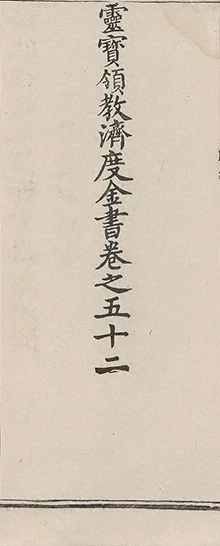 靈寶領教濟度金書卷之五十二